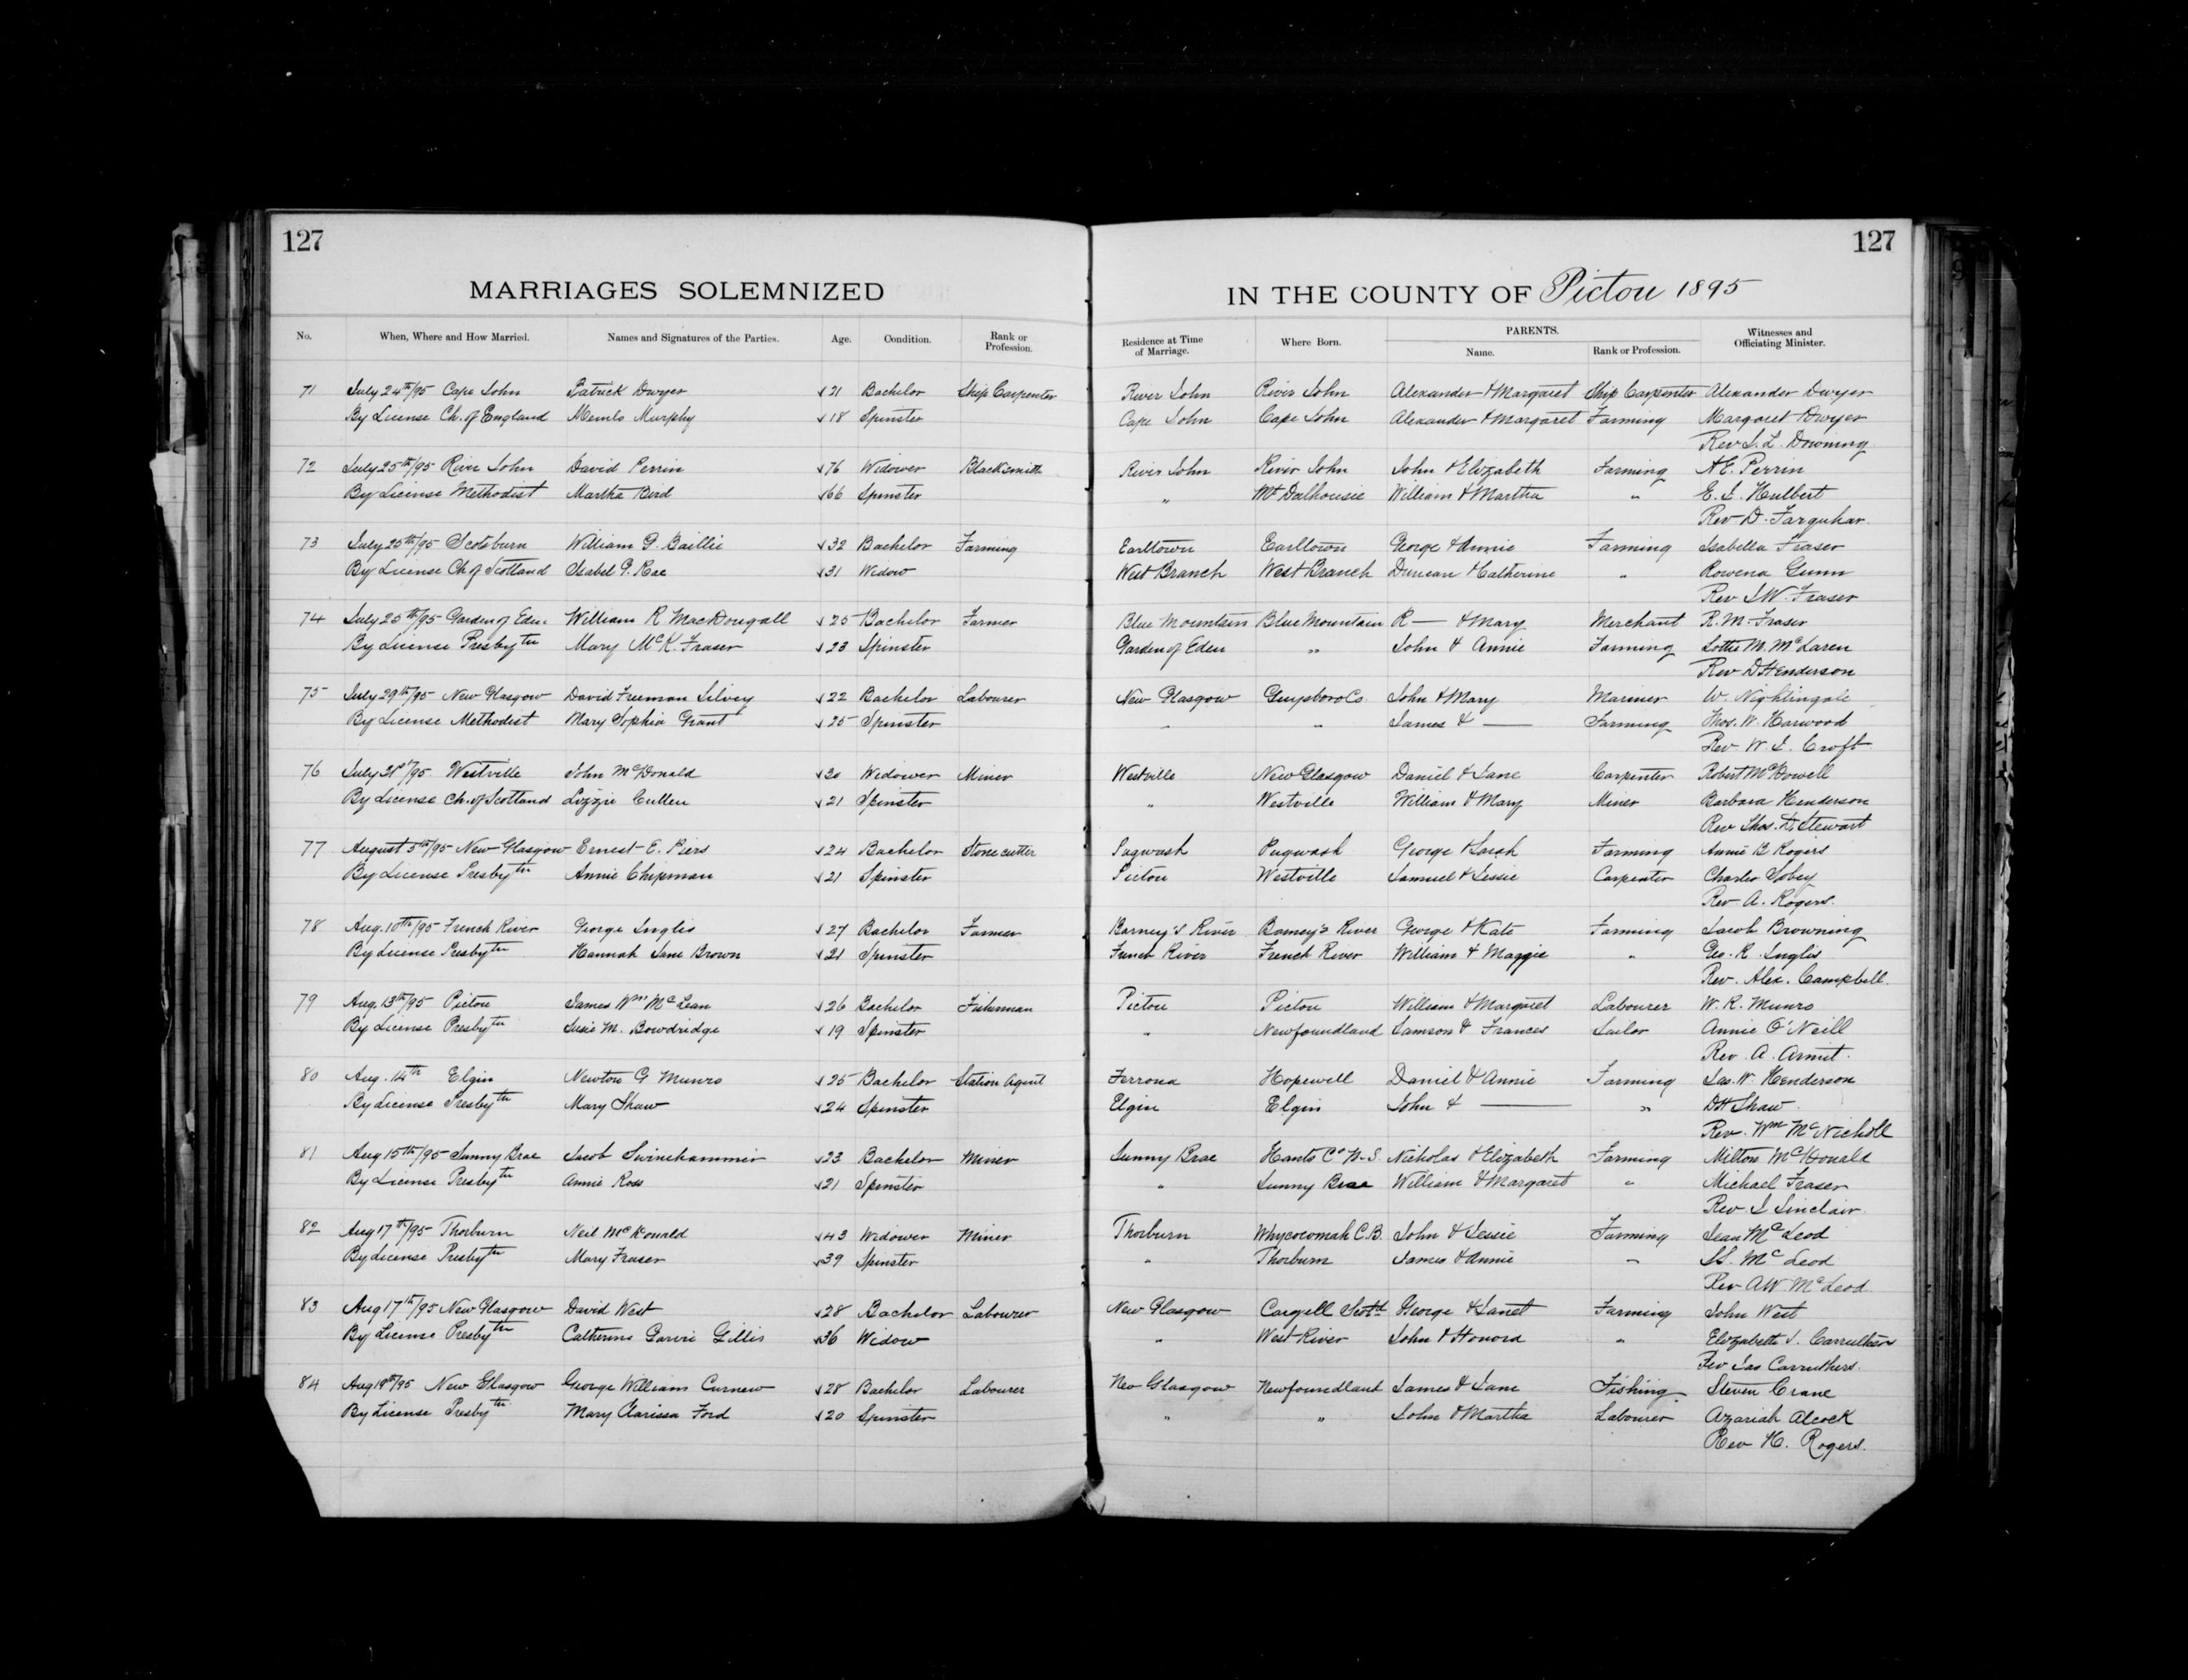 127
127
MARRIAGES SOLEMNIZED IN THE COUNTY OF Pictou 1895
No. When, Where and How Married. Names and Signatures of the Parties. Age. Condition. Rank or Profession. Residence at Time of Marriage. Where Born. PARENTS. Name. Rank or Profession. Witnesses and Officiating Minister.
71 July 24th/95 Cape John Patrick Dwyer 21 Bachelor Ship Carpenter River John River John Alexander & Margaret Ship Carpenter Alexander Dwyer
By License Ch. of England Murphy 18 Spinster Cape John Cape John Alexander & Margaret Farming Margaret Dwyer
Rev J. L. Downing
72 July 25th/95 River John David Perrin 76 Widower Blacksmith River John River John John & Elizabeth Farming Perrin
By License Methodist Martha Bird 66 Spinster " Mt Dalhousie William & Martha " E. J. Hulbert
Rev D. Farquhar.
73 July 25th/95 Scotsburn William G. Baillie 32 Bachelor Farming Earltown Earltown George & Annie Farming Isabella Fraser
By License Ch of Scotland Isabel G. Rae 31 Widow West Branch West Branch Duncan & Catherine " Rowena Gunn
Rev J. W. Fraser
74 July 25th/95 Garden of Eden William R MacDougall 25 Bachelor Farmer Blue Mountain Blue Mountain R — & Mary Merchant R. M. Fraser
By License Presbytn Mary McK. Fraser 23 Spinster Garden of Eden " John & Annie Farming Lottie M. McLaren
Rev D Henderson
75 July 29th/95 New Glasgow David Freeman Silvey 22 Bachelor Labourer New Glasgow Guysboro Co. John & Mary Mariner W. Nightingale
By License Methodist Mary Sophia Grant 25 Spinster " " James & — Farming Thos. W. Harwood
Rev. W. I. Croft
76 July 31st/95 Westville John McDonald 30 Widower Miner Westville New Glasgow Daniel & Jane Carpenter Robert McDowell
By License Ch. of Scotland Lizzie Cullen 21 Spinster " Westville William & Mary Miner Barbara Henderson
Rev Thos. D. Stewart
77 August 5th/95 New Glasgow Ernest E. Piers 24 Bachelor Stone cutter Pugwash Pugwash George & Sarah Farming Annie B Rogers
By License Presbytn Annie Chipman 21 Spinster Pictou Westville Samuel & Jessie Carpenter Charles Sobey
Rev A. Rogers.
78 Aug. 10th/95 French River George Inglis 27 Bachelor Farmer Barney's River Barney's River George & Kate Farming Jacob Browning
By License Presbytn Hannah Jane Brown 21 Spinster French River French River William & Maggie " Geo. R. Inglis
Rev. Alex. Campbell.
79 Aug. 13th/95 Pictou James Wm McLean 26 Bachelor Fisherman Pictou Pictou William & Margaret Labourer W. R. Munro
By License Presbytn Susie M. Bowdridge 19 Spinster " Newfoundland Samson & Frances Sailor Annie O'Neill
Rev. A. Armit.
80 Aug. 14th Elgin Newton G Munro 25 Bachelor Station Agent Ferrona Hopewell Daniel & Annie Farming Jas. W. Henderson
By License Presbytn Mary Shaw 24 Spinster Elgin Elgin John & — " DH Shaw
Rev. Wm McNicholl
81 Aug 15th/95 Sunny Brae Jacob Swinehammer 23 Bachelor Miner Sunny Brae Hants Co N.S. Nicholas & Elizabeth Farming Milton McDonald
By License Presbytn Annie Ross 21 Spinster " Sunny Brae William & Margaret " Michael Fraser
Rev J Sinclair
82 Aug 17th/95 Thorburn Neil McDonald 43 Widower Miner Thorburn Whycocomah C.B. John & Jessie Farming Jean McLeod
By License Presbytn Mary Fraser 39 Spinster " Thorburn James & Annie " McLeod
Rev AW McLeod
83 Aug 17th/95 New Glasgow David West 28 Bachelor Labourer New Glasgow Cargill Scotd George & Janet Farming John West
By License Presbytn Catherine Garvie Gillis 36 Widow " West River John & Honora " Elizabeth J. Carruthers
Rev Jas Carruthers.
84 Aug 19th/95 New Glasgow George William Curnew 28 Bachelor Labourer New Glasgow Newfoundland James & Jane Fishing Steven Crane
By License Presbytn Mary Clarissa Ford 20 Spinster " " John & Martha Labourer Azariah Alcock
Rev H. Rogers.